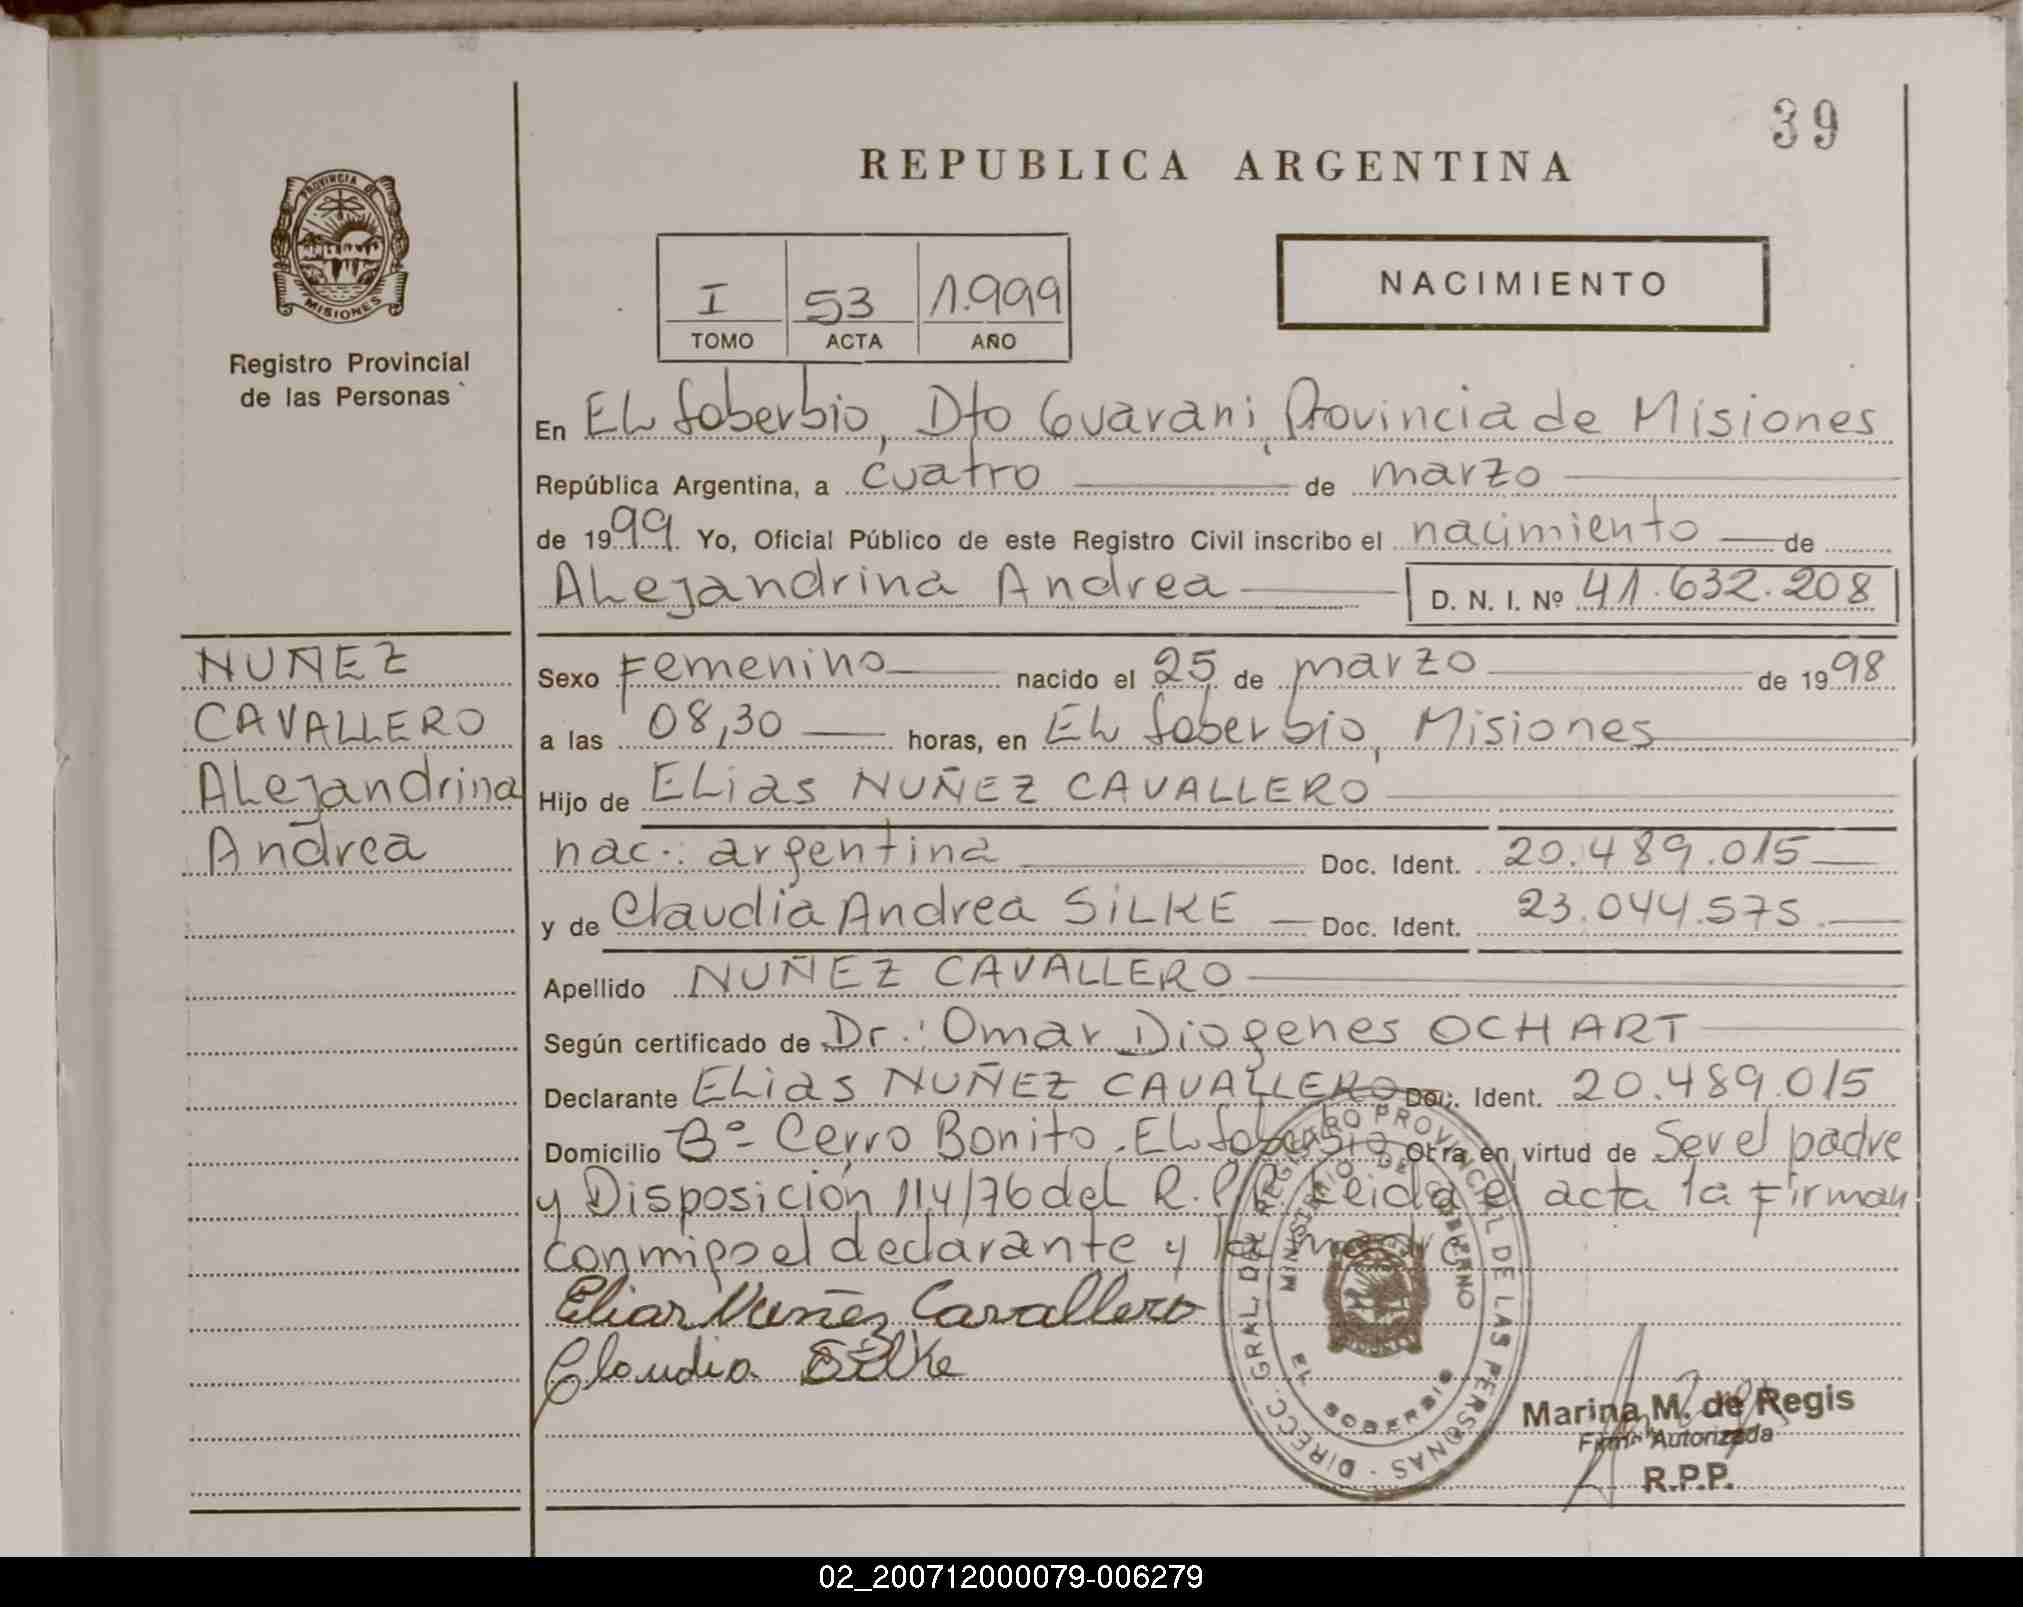 39
REPUBLICA ARGENTINA
PROVINCIA DE
MISIONES
Registro Provincial
de las Personas
I 53 1.999
TOMO ACTA AÑO
NACIMIENTO
En EL Soberbio, Dto Guarani, Provincia de Misiones
República Argentina, a cuatro de marzo
de 1999. Yo, Oficial Público de este Registro Civil inscribo el nacimiento de
ALejandrina Andrea D. N. I. Nº 41.632.208
NUÑEZ
CAVALLERO
ALejandrina
Andrea
Sexo Femenino nacido el 25 de marzo de 1998
a las 08,30 horas, en EL Soberbio, Misiones
Hijo de ELias NUÑEZ CAVALLERO
nac.: argentina Doc. Ident. 20.489.015
y de Claudia Andrea SiLKE Doc. Ident. 23.044.575.
Apellido NUÑEZ CAVALLERO
Según certificado de Dr.: Omar Diogenes OCHART
Declarante ELias NUÑEZ CAVALLERO Doc. Ident. 20.489.015
Domicilio Bº Cerro Bonito. EL Soberbio Obra en virtud de Ser el padre
y Disposición 114/76 del R.P.P. Leida el acta la Firman
conmigo el declarante y la madre
Elias Nuñez Cavallero
Claudia Silke
DIRECC. GRAL. DEL REGISTRO PROVINCIAL DE LAS PERSONAS -
MINISTERIO DE GOBIERNO
EL SOBERBIO
Marina M. de Regis
Firma Autorizada
R.P.P.
02_200712000079-006279